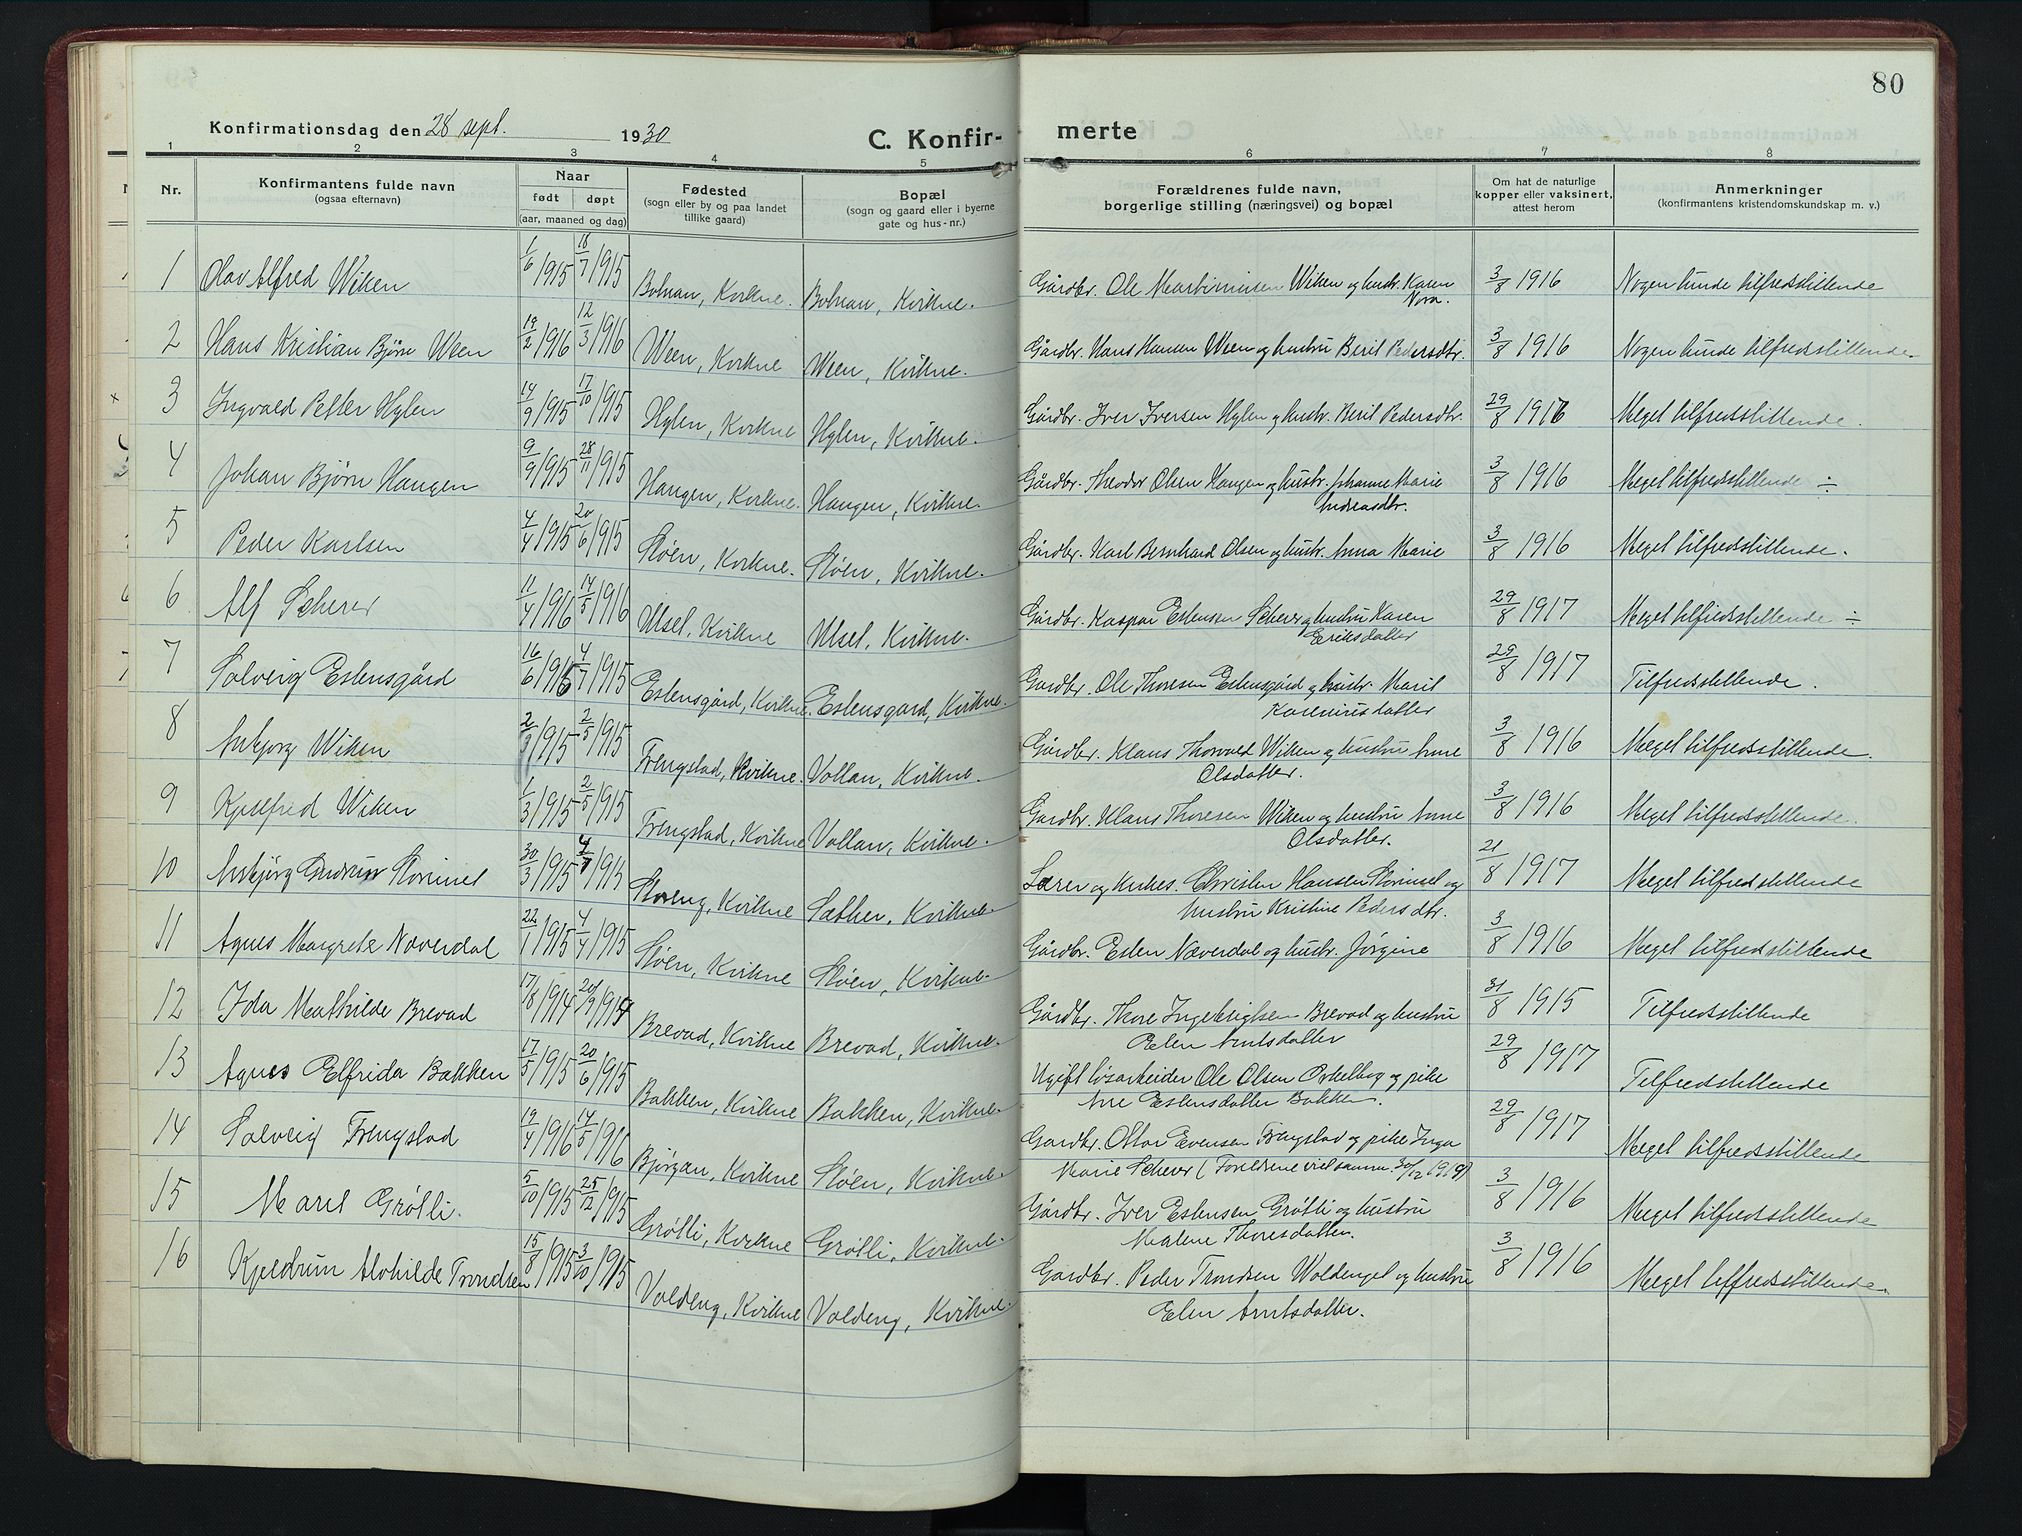 80
Konfirmationsdag den 28 sept. 1930
C. Konfirmerte
1 2 3 4 5 6 7 8
Nr.
Konfirmantens fulde navn
(ogsaa efternavn)
Naar
født døpt
(aar, maaned og dag)
Fødested
(sogn eller by og paa landet
tillike gaard)
Bopæl
(sogn og gaard eller i byerne
gate og hus-nr.)
Forældrenes fulde navn,
borgerlige stilling (næringsvei) og bopæl
Om hat de naturlige
kopper eller vaksinert,
attest herom
Anmerkninger
(konfirmantens kristendomskundskap m. v.)
1 Olav Alfred Wiken 1/6 1915 18/7 1915 Kvikne. Kvikne. Gårdbr. Ole Wiken og hustr. Karen 3/8 1916 Nogenlunde tilfredsstillende
2 Hans Kristian Bjørn Ween 19/2 1916 12/3 1916 Ween, Kvikne Ween, Kvikne. Gårdbr. Hans Hansen Ween og hustru Beril Pedersdtr. 3/8 1916 Nogenlunde tilfredsstillende.
3 Ingvald Petter Hylen 14/9 1915 17/10 1915 Hylen, Kvikne Hylen, Kvikne. Gårdbr. Iver Iversen Hylen og hustr. Beril Pedersdtr. 29/8 1916 Meget tilfredsstillende.
4 Johan Bjørn Haugen 9/9 1915 28/11 1915 Haugen, Kvikne. Haugen, Kvikne. Gårdbr. Theodor Olsen Haugen og hustr. Johanne Marie 3/8 1916 Meget tilfredsstillende ÷
Andreasdtr.
5 Peder Karlsen 4/4 1915 20/6 1915 Støen, Kvikne. Støen, Kvikne. Gårdbr. Karl Bernhard Olsen og hustr. Anna Marie 3/8 1916 Meget tilfredsstillende.
6 Alf Scherer 11/4 1916 14/5 1916 Utsel, Kvikne Utsel, Kvikne. Gårdbr. Kaspar Estensen og hustru Karen 29/8 1917 Meget tilfredsstillende ÷
Eriksdatter
7 Solveig Estensgård 16/6 1915 4/7 1915 Estensgård, Kvikne. Estensgard, Kvikne. Gardbr. Ole Thoresen Estensgård og hustr. Marit 29/8 1917 Tilfredsstillende.
8 Asbjørg Wiken 1915 2/5 1915 Frengstad, Kvikne. Vollan, Kvikne. Gårdbr. Klaus Thorvald Wiken og hustru Anne 3/8 1916 Meget tilfredsstillende.
Olsdatter.
9 Kjellfred Wiken 1/3 1915 2/5 1915 Frengstad, Kvikne Vollan, Kvikne. Gårdbr. Klaus Thoresen Wiken og hustru Anne 3/8 1916 Meget tilfredsstillende.
Olsdatter.
10 Asbjørg Gudrun Storimel 30/3 1915 Storeng, Kvikne Sæther, Kvikne. Lærer og kirkes. Christen Hansen Storimel og 21/8 1917 Meget tilfredsstillende
hustru Kristine Pedersdtr.
11 Agnes Margrete Næverdal 22/1 1915 4/4 1915 Støen, Kvikne Støen, Kvikne. Gårdbr. Esten Næverdal og hustr. Jørgine 3/8 1916 Meget tilfredsstillende
12 Ida Mathilde Brevad 17/8 1914 20/9 1914 Brevad, Kvikne Brevad, Kvikne. Gårdbr. Thore Ingebrigtsen Brevad og hustru 31/8 1915 Tilfredsstillende
Elen Arntsdatter
13 Agnes Elfrida Bakken 17/5 1915 20/6 1915 Bakken, Kvikne Bakken, Kvikne. Ugift løsarbeider Ole Olsen og pike 29/8 1917 Tilfredsstillende
Estensdatter Bakken.
14 Solveig Frengstad 19/4 1916 14/5 1916 Bjørgan, Kvikne Støen, Kvikne. Gardbr. Ottar Evensen Frengstad og pike Inga 29/8 1917 Meget tilfredsstillende
Marie Scherer (Foreldrene viet samm. 30/12 1919)
15 Marit Grøtli. 5/10 1915 25/12 1915 Grøtli, Kvikne Grøtli, Kvikne. Gårdbr. Iver Estensen Grøtli og hustru 3/8 1916 Meget tilfredsstillende
Malene Thoresdatter.
16 Kjeldrun Alvhilde Trondsen 15/8 1915 3/10 1915 Voldeng, Kvikne Voldeng, Kvikne. Gardbr. Peder Trondsen Woldenget og hustru 3/8 1916 Meget tilfredsstillende.
Elen Arntsdatter.